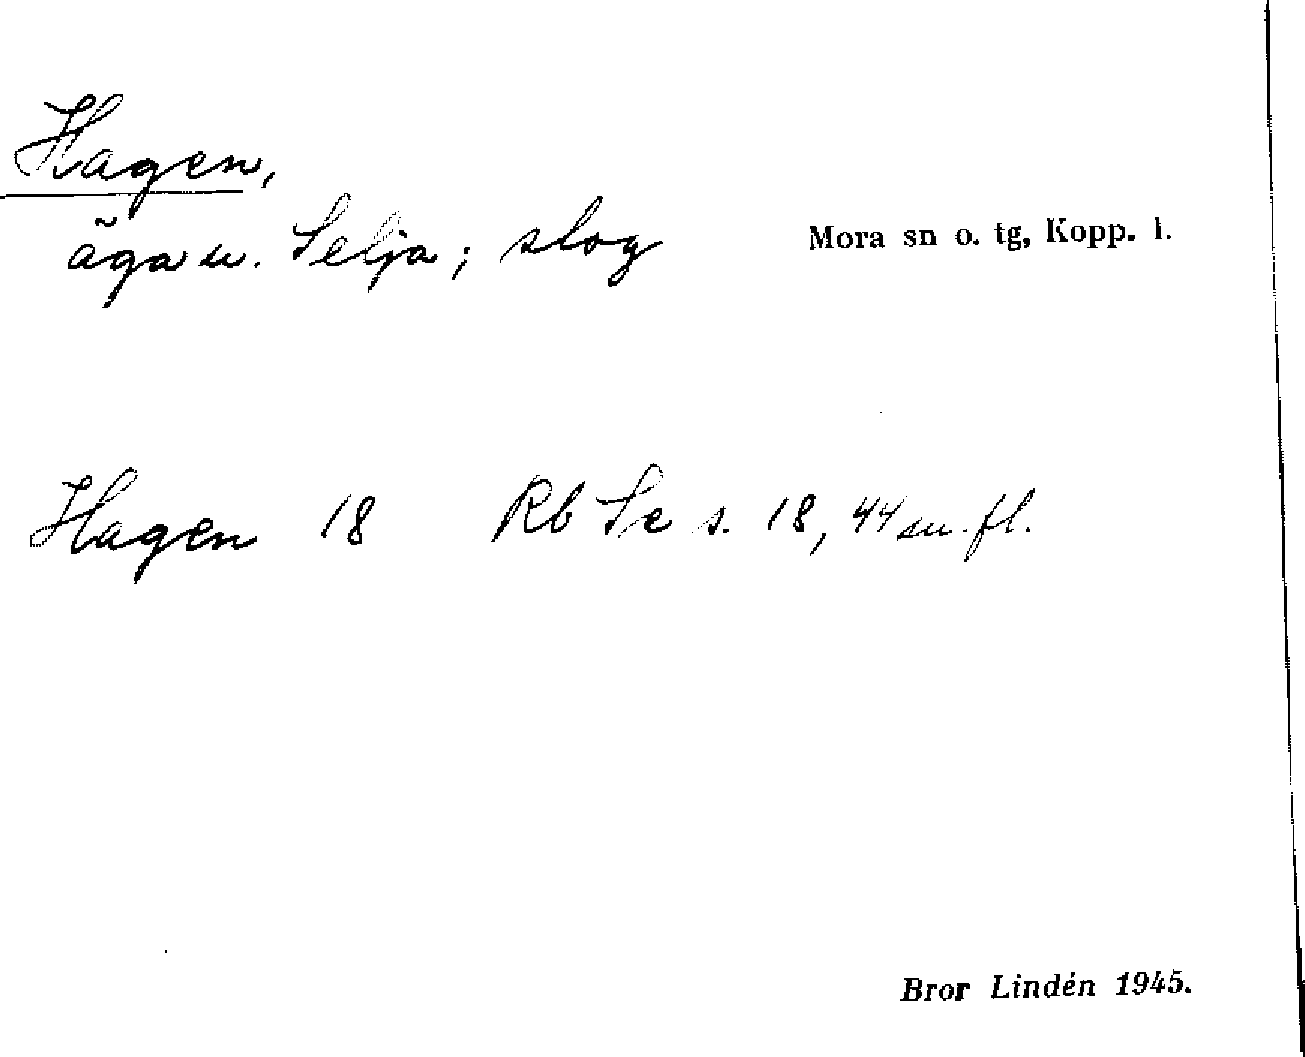 Hagen,
ägau. Selja; slog
Mora sn o. tg, Kopp. l.
Hagen 18 Rb Se s. 18, 44 su. fl.
Bror Lindén 1945.